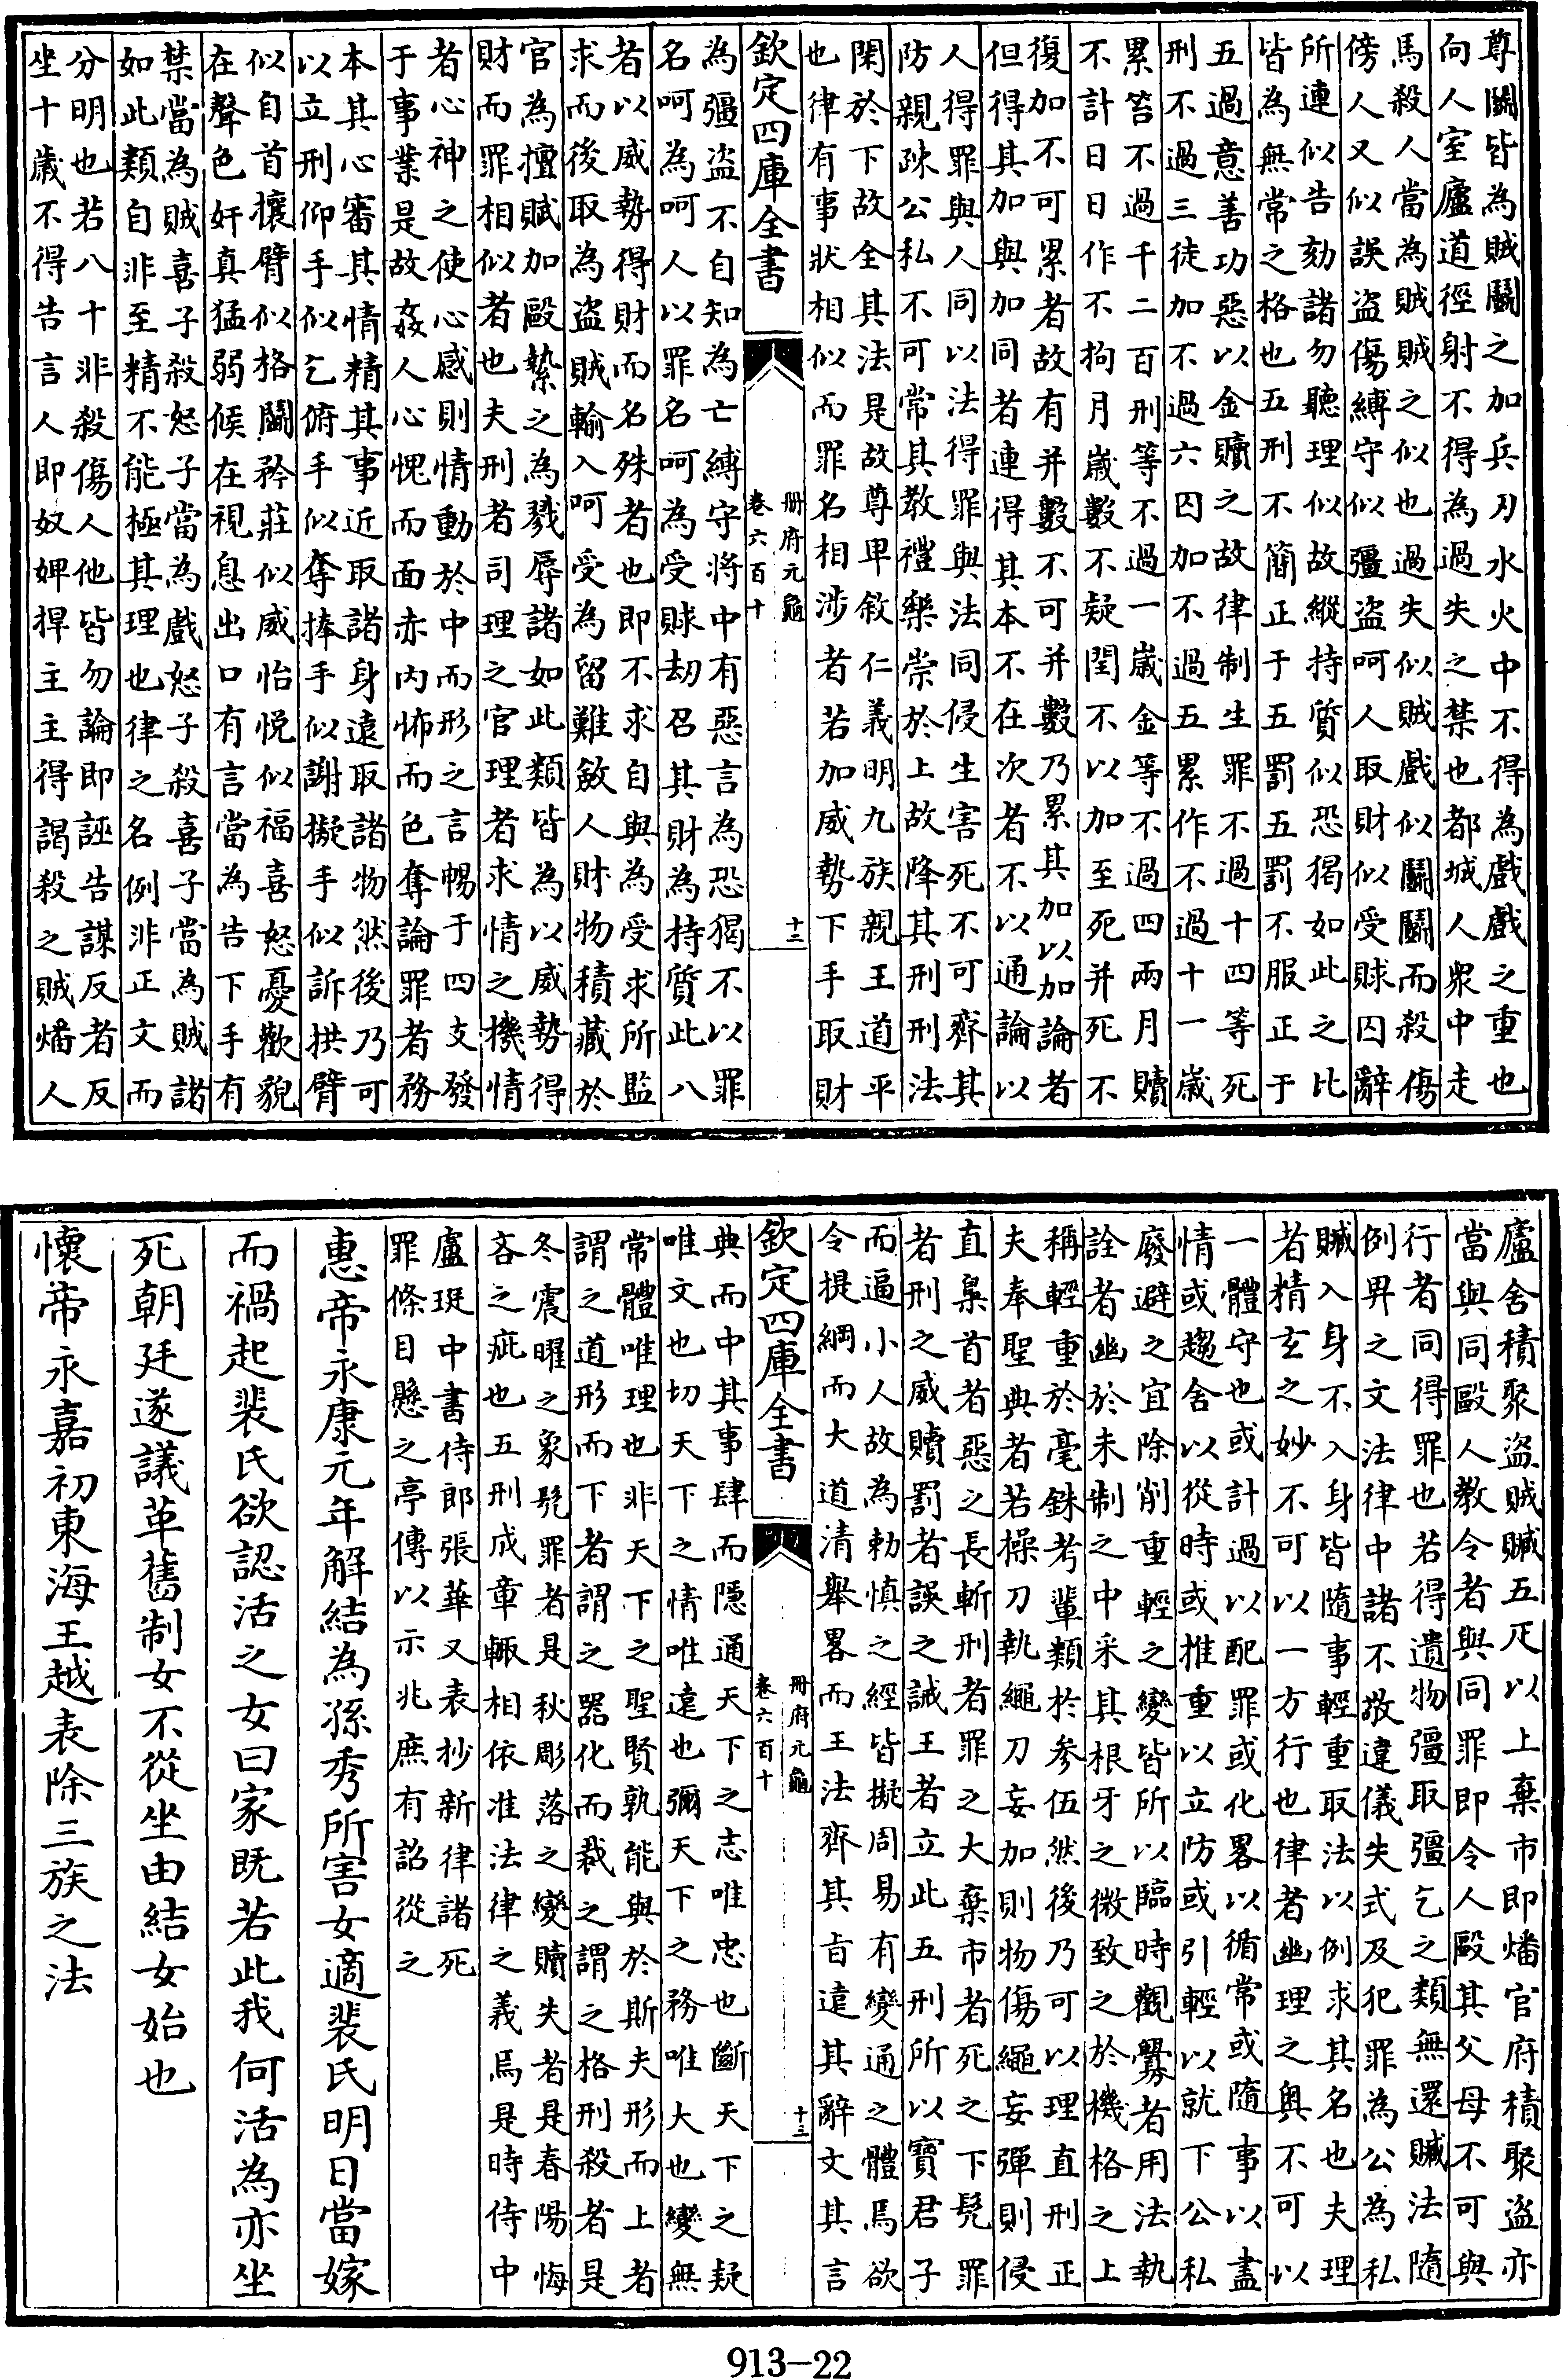 尊鬭皆為賊鬭之加兵刃水火中不得為戲戲之重也
向人室廬道徑射不得為過失之禁也都城人衆中走
馬殺人當為賊賊之似也過失似賊戲似鬭鬭而殺傷
傍人又似誤盗傷縛守似彊盗呵人取財似受賕囚辭
所連似告劾諸勿聽理似故縱持質似恐猲如此之比
皆為無常之格也五刑不簡正于五罰五罰不服正于
五過意善功惡以金贖之故律制生罪不過十四等死
刑不過三徒加不過六囚加不過五累作不過十一嵗
累笞不過千二百刑等不過一嵗金等不過四兩月贖
不計日日作不拘月嵗數不疑閏不以加至死并死不
復加不可累者故有并數不可并數乃累其加以加論者
但得其加與加同者連得其本不在次者不以通論以
人得罪與人同以法得罪與法同侵生害死不可齊其
防親疎公私不可常其教禮樂崇於上故降其刑刑法
閑於下故全其法是故尊卑敘仁義明九族親王道平
也律有事狀相似而罪名相涉者若加威勢下手取財
欽定四庫全書
冊府元龜
卷六百十
十二
為彊盗不自知為亡縛守將中有惡言為恐猲不以罪
名呵為呵人以罪名呵為受賕刼召其財為持質此八
者以威勢得財而名殊者也即不求自與為受求所監
求而後取為盗賊輸入呵受為留難斂人財物積藏於
官為擅賦加毆縶之為戮辱諸如此類皆為以威勢得
財而罪相似者也夫刑者司理之官理者求情之機情
者心神之使心感則情動於中而形之言暢于四支發
于事業是故姦人心愧而面赤内怖而色奪論罪者務
本其心審其情精其事近取諸身遠取諸物然後乃可
以立刑仰手似乞俯手似奪捧手似謝擬手似訴拱臂
似自首攘臂似格鬭矜莊似威怡悦似福喜怒憂歡貌
在聲色奸真猛弱候在視息出口有言當為告下手有
禁當為賊喜子殺怒子當為戲怒子殺喜子當為賊諸
如此類自非至精不能極其理也律之名例非正文而
分明也若八十非殺傷人他皆勿論即誣告謀反者反
坐十嵗不得告言人即奴婢捍主主得謁殺之賊燔人
廬舍積聚盗賊贓五疋以上棄市即燔官府積聚盗亦
當與同毆人教令者與同罪即令人毆其父母不可與
行者同得罪也若得遺物彊取彊乞之類無還贓法隨
例畀之文法律中諸不敬違儀失式及犯罪為公為私
贓入身不入身皆隨事輕重取法以例求其名也夫理
者精玄之妙不可以一方行也律者幽理之奥不可以
一體守也或計過以配罪或化畧以循常或隨事以盡
情或趨舍以從時或推重以立防或引輕以就下公私
廢避之宜除削重輕之變皆所以臨時觀釁者用法執
詮者幽於未制之中采其根牙之微致之於機格之上
稱輕重於毫銖考輩類於參伍然後乃可以理直刑正
夫奉聖典者若操刀執繩刀妄加則物傷繩妄彈則侵
直梟首者惡之長斬刑者罪之大棄市者死之下髠罪
者刑之威贖罰者誤之誡王者立此五刑所以寶君子
而逼小人故為勅慎之經皆擬周易有變通之體焉欲
令提綱而大道清舉畧而王法齊其㫖遠其辭文其言
欽定四庫全書
冊府元龜
卷六百十
十三
典而中其事肆而隱通天下之志唯忠也斷天下之疑
唯文也切天下之情唯遠也彌天下之務唯大也變無
常體唯理也非天下之聖賢孰能與於斯夫形而上者
謂之道形而下者謂之器化而裁之謂之格刑殺者是
冬震曜之象髠罪者是秋彫落之變贖失者是春陽悔
吝之疵也五刑成章輒相依准法律之義焉是時侍中
盧珽中書侍郎張華又表抄新律諸死
罪條目懸之亭傳以示兆庶有詔從之
惠帝永康元年解結為孫秀所害女適裴氏明日當嫁
而禍起裴氏欲認活之女曰家既若此我何活為亦坐
死朝廷遂議革舊制女不從坐由結女始也
懷帝永嘉初東海王越表除三族之法
913—22